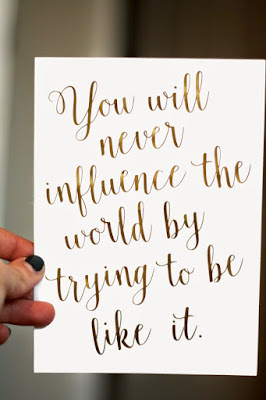 You will
never
influence the
world by
trying to be
like it.